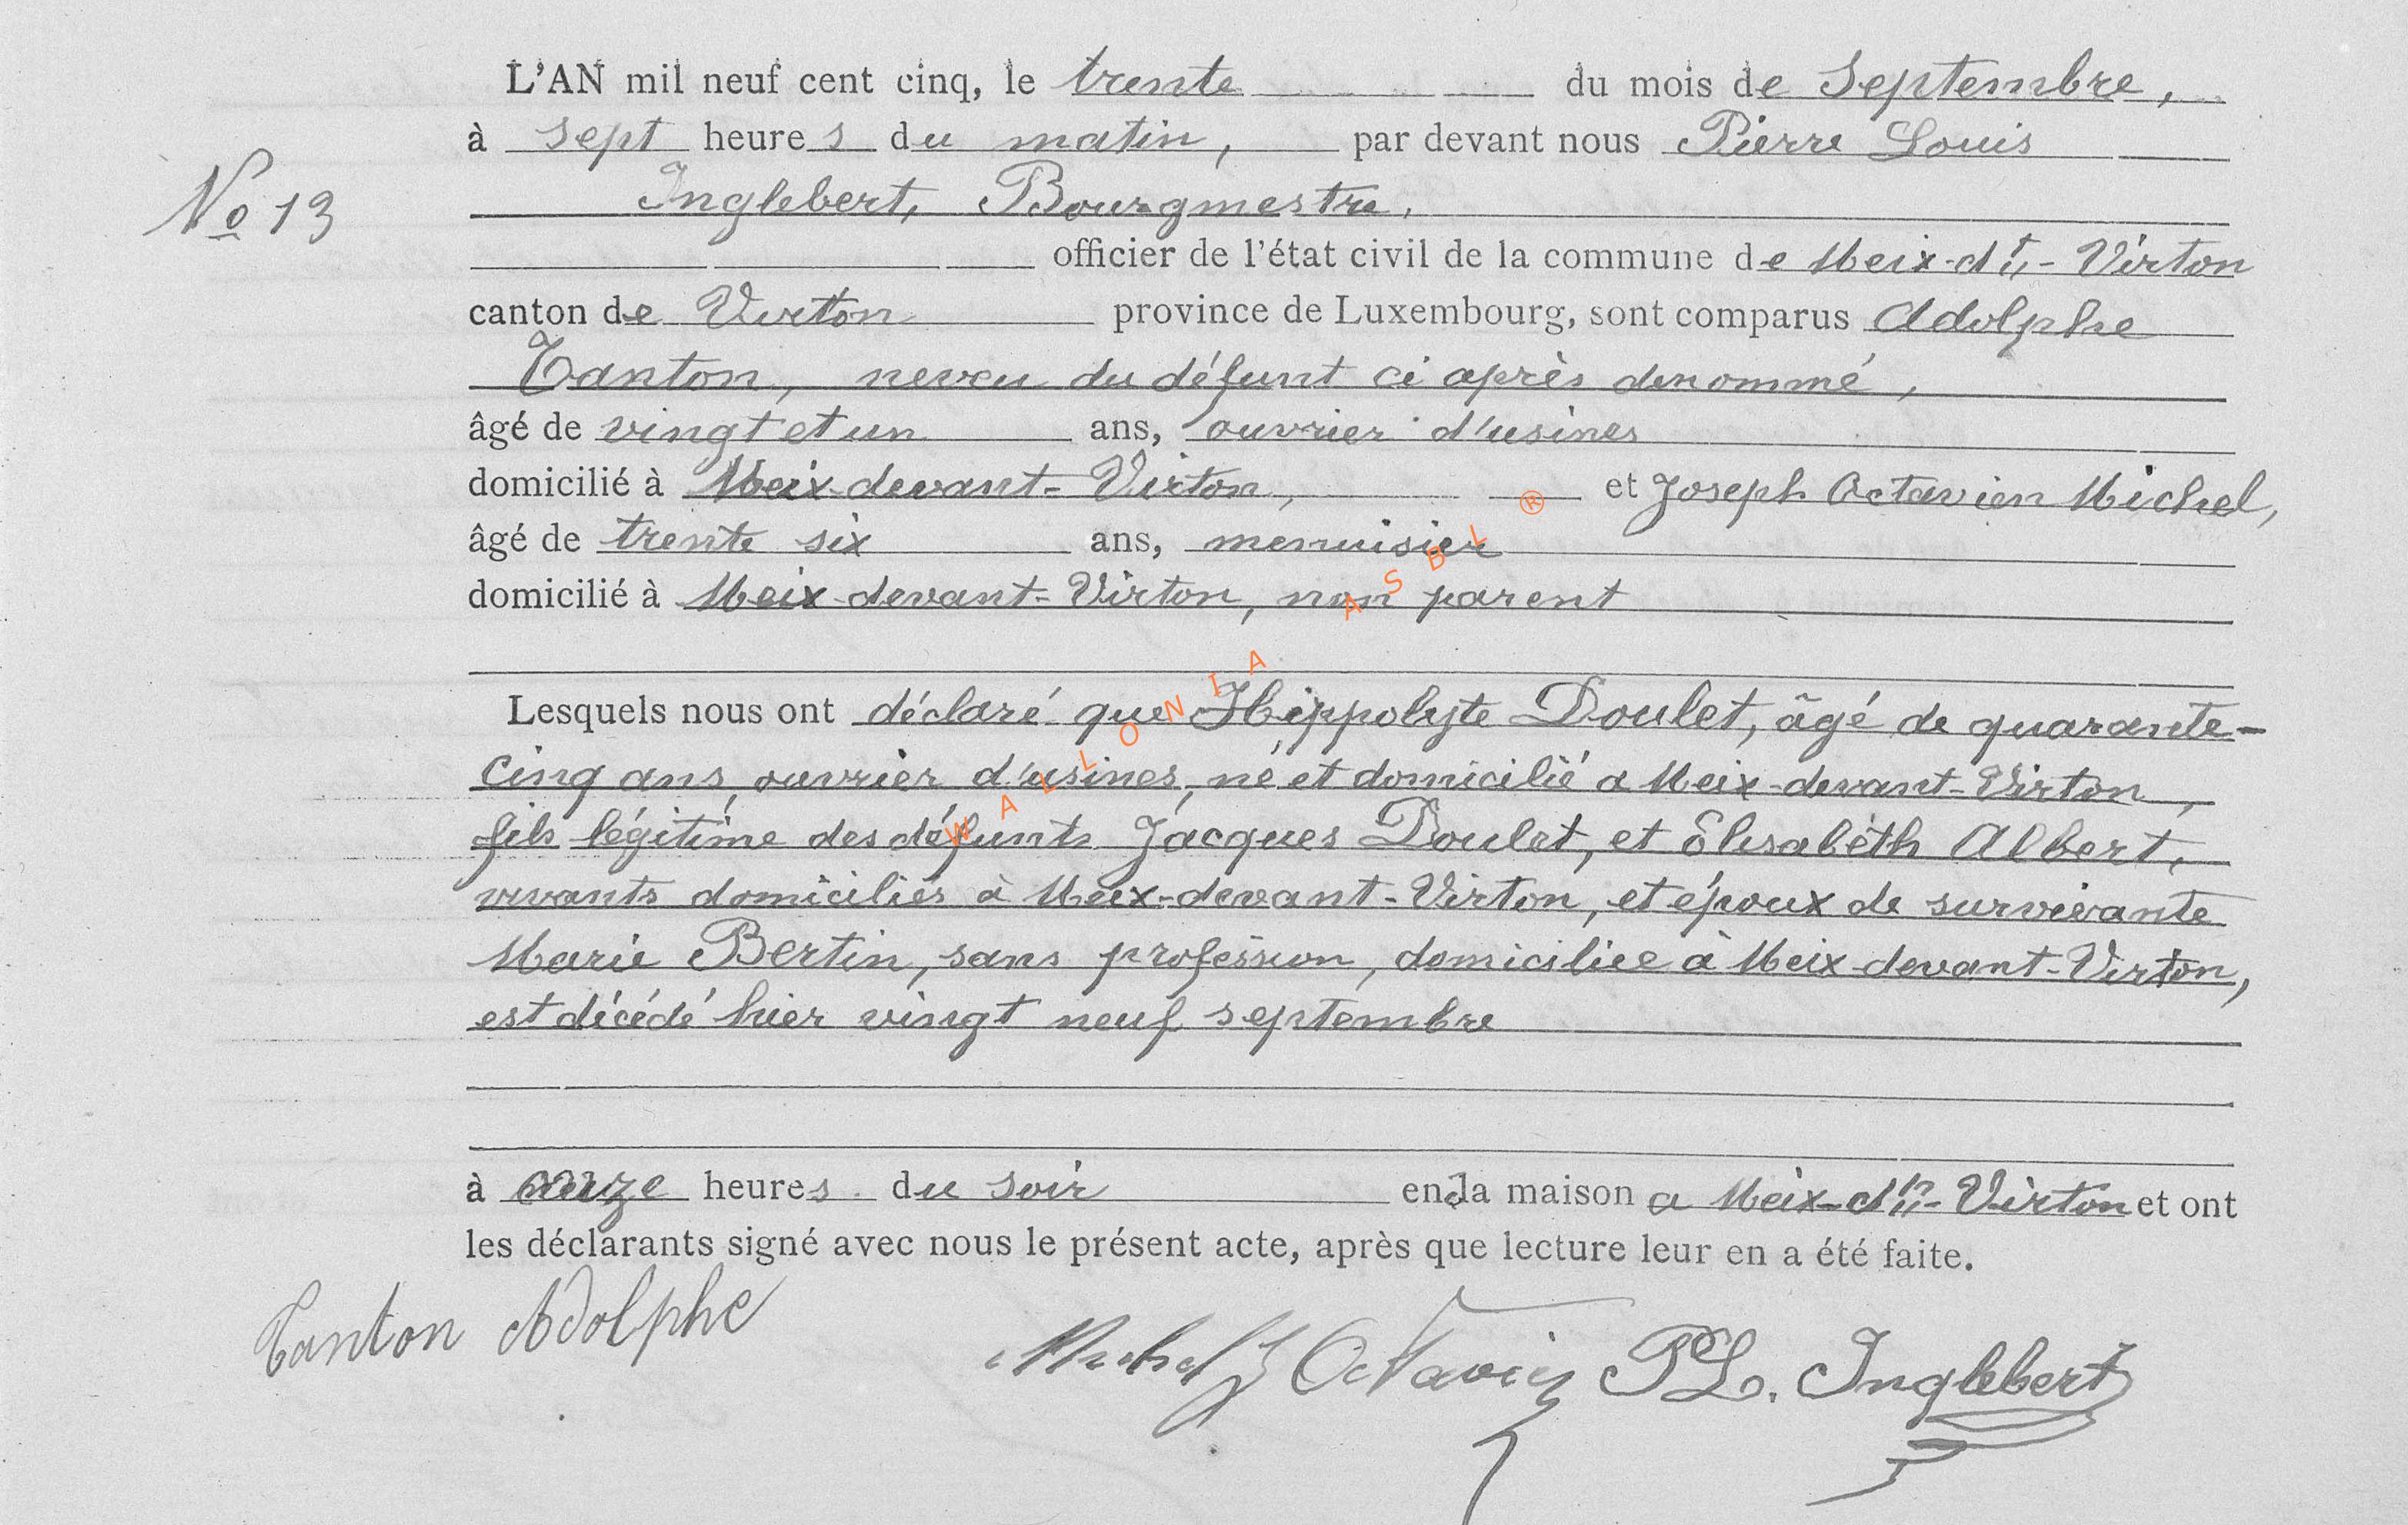 L'AN mil neuf cent cinq, le trente du mois de Septembre,
à sept heures du matin, par devant nous Pierre Louis
No 13
Inglebert, Bourgmestre,
officier de l'état civil de la commune de Meix-dt-Virton
canton de Virton province de Luxembourg, sont comparus Adolphe
Tanton, neveu du défunt ci après dénommé,
âgé de vingt et un ans, ouvrier d'usines
domicilié à Meix-devant-Virton, et Joseph Octavien Michel,
âgé de trente six ans, menuisier
domicilié à Meix-devant-Virton, non parent
Lesquels nous ont déclaré que Hippolyte Doulet, âgé de quarante-
cinq ans, ouvrier d'usines, né et domicilié a Meix-devant-Virton,
fils légitime des défunts Jacques Doulet, et Elisabéth Albert,
vivants domiciliés à Meix-devant-Virton, et époux de survivante
Marie Bertin, sans profession, domiciliée à Meix-devant-Virton,
est décédé hier vingt neuf septembre
à onze heures du soir en la maison a Meix-dt-Virton et ont
les déclarants signé avec nous le présent acte, après que lecture leur en a été faite.
Tanton Adolphe
Michel J Octavien PL. Inglebert
WALLONIA ASBL ®